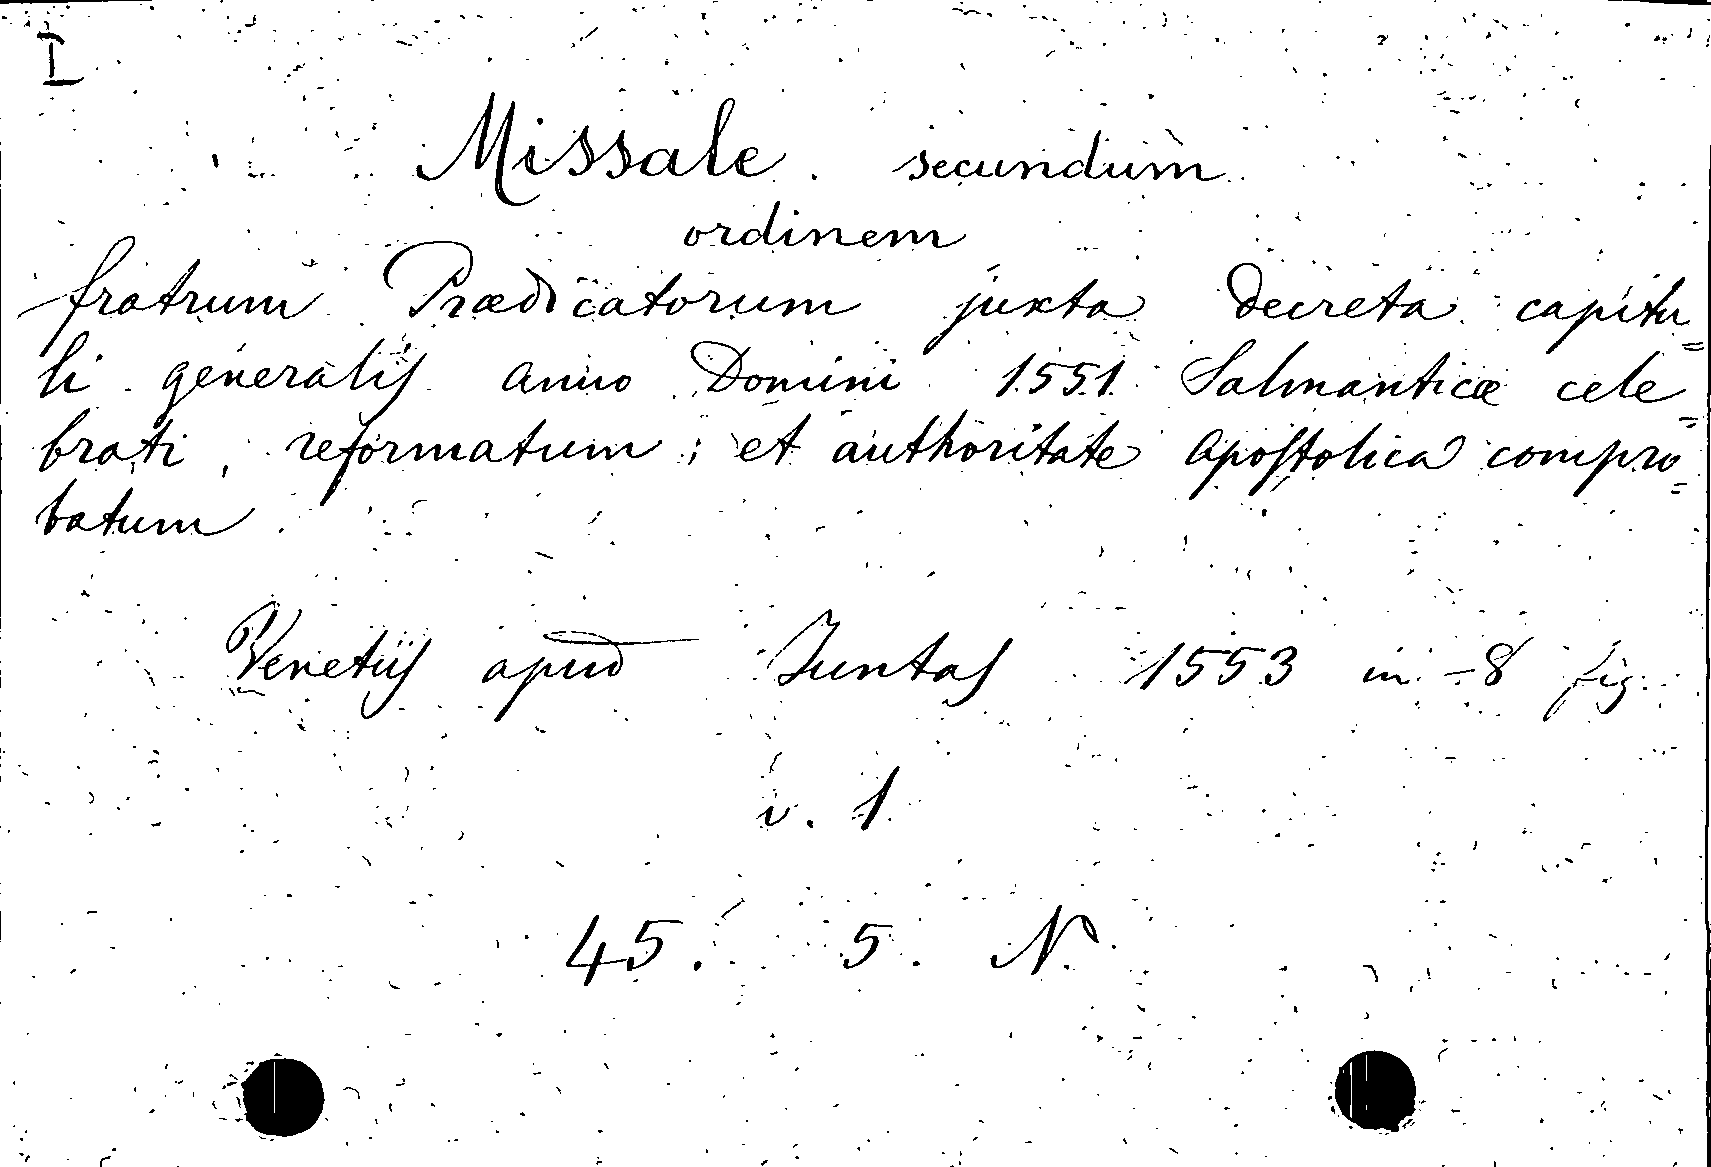 I
Missale secundum
ordinem
fratrum Prædicatorum juxta decreta capitu=
li generalis anno Domini 1551 Salmanticæ cele=
brati, reformatum; et authoritate apostolica compro=
batum
Venetiis apud Juntas 1553 in-8 fig.
v. 1
45. 5. N.